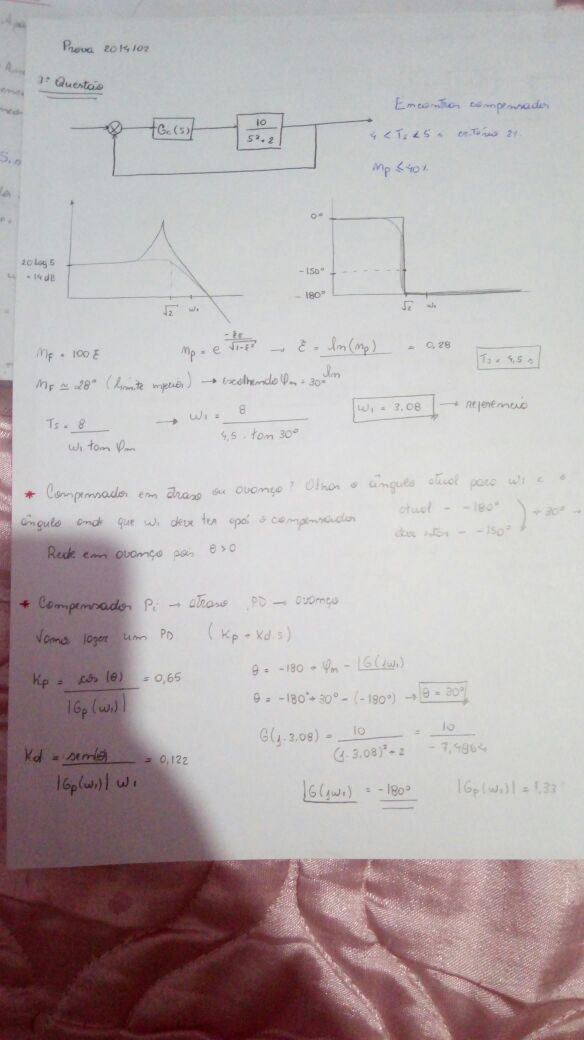 Prova 2014/02
1ª Questão
Encontrar compensador
Gc(s)
10
s²+2
4 < Ts < 5 s critério 2%
Mp ≤ 40%
20 log 5
= 14 dB
√2 w1
0°
-150°
-180°
√2 w1
MF = 100 ξ
Mp = e^(-ξπ/√(1-ξ²)) → ξ = ln(Mp) = 0,28
Ts = 4,5 s
MF ≃ 28° (limite inferior) → escolhendo φm = 30°
Ts = 8 / w1 tan φm → w1 = 8 / 4,5 . tan 30°
w1 = 3.08 → referencia
* Compensador em atraso ou avanço? Olhar o ângulo atual para w1 e o
ângulo onde que w1 deve ter após o compensador
atual - -180°
deve - -150°
+ 30°
Rede em avanço pois θ > 0
* Compensador Pi → atraso, PD → avanço
Vamos fazer um PD (Kp + Kd.s)
Kp = cos (θ) / |Gp(w1)| = 0,65
θ = -180 + φm - ∠G(jw1)
θ = -180° + 30° - (-180°) → θ = 30°
G(j.3,08) = 10 / (j.3,08)² + 2 = 10 / -7,4864
Kd = sen(θ) / |Gp(w1)| w1 = 0,122
∠G(jw1) = -180°
|Gp(w1)| = 1,33